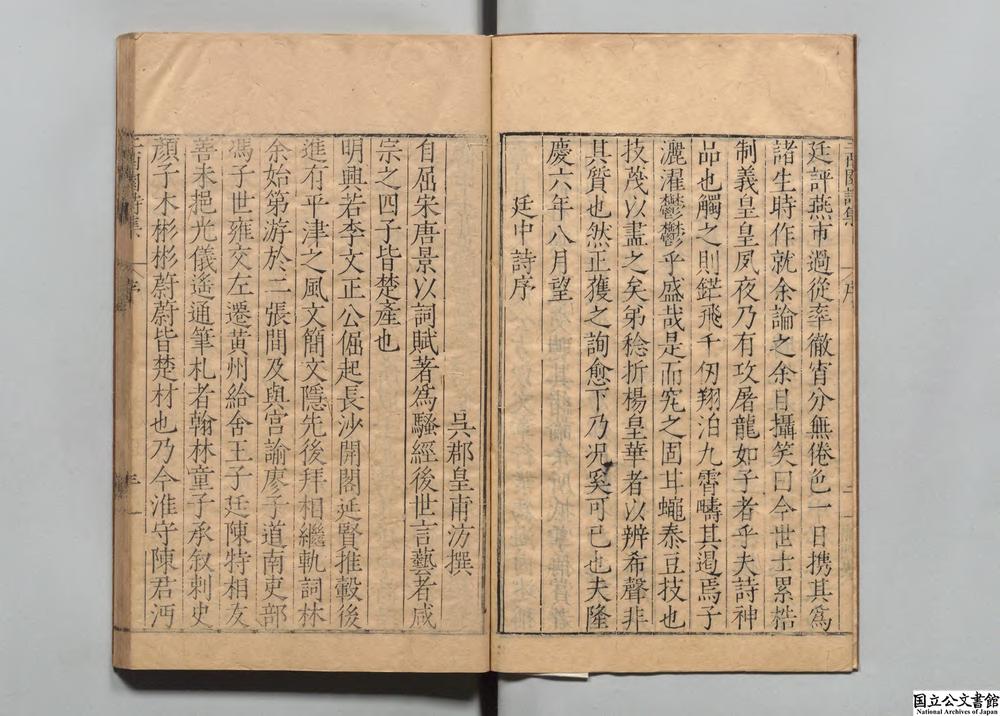 廷評燕市過從率徹宵分無倦色一日携其為
諸生時作就余論之余目攝笑曰今世士累梏
制義皇皇夙夜乃有攻屠龍如子者乎夫詩神
品也觸之則鋩飛千仞翔泊九霄疇其遏焉子
灑濯鬱鬱乎盛哉是而究之固耳蠅黍豆技也
技蔑以盡之矣弟稔折楊皇華者以辨希聲非
其質也然正獲之詢愈下乃況奚可已也夫隆
慶六年八月望
廷中詩序
吳郡皇甫汸撰
自屈宋唐景以詞賦著為騷經後世言藝者咸
宗之四子皆楚產也
明興若李文正公倔起長沙開閣延賢推轂後
進有平津之風文簡文隱先後拜相繼軌詞林
余始第游於二張間及與宮諭廖子道南吏部
馮子世雍交左遷黃州給舍王子廷陳特相友
善未挹光儀遙通筆札者翰林童子承叙刺史
顏子木彬彬蔚蔚皆楚材也乃今淮守陳君沔
國立公文書館
National Archives of Japan